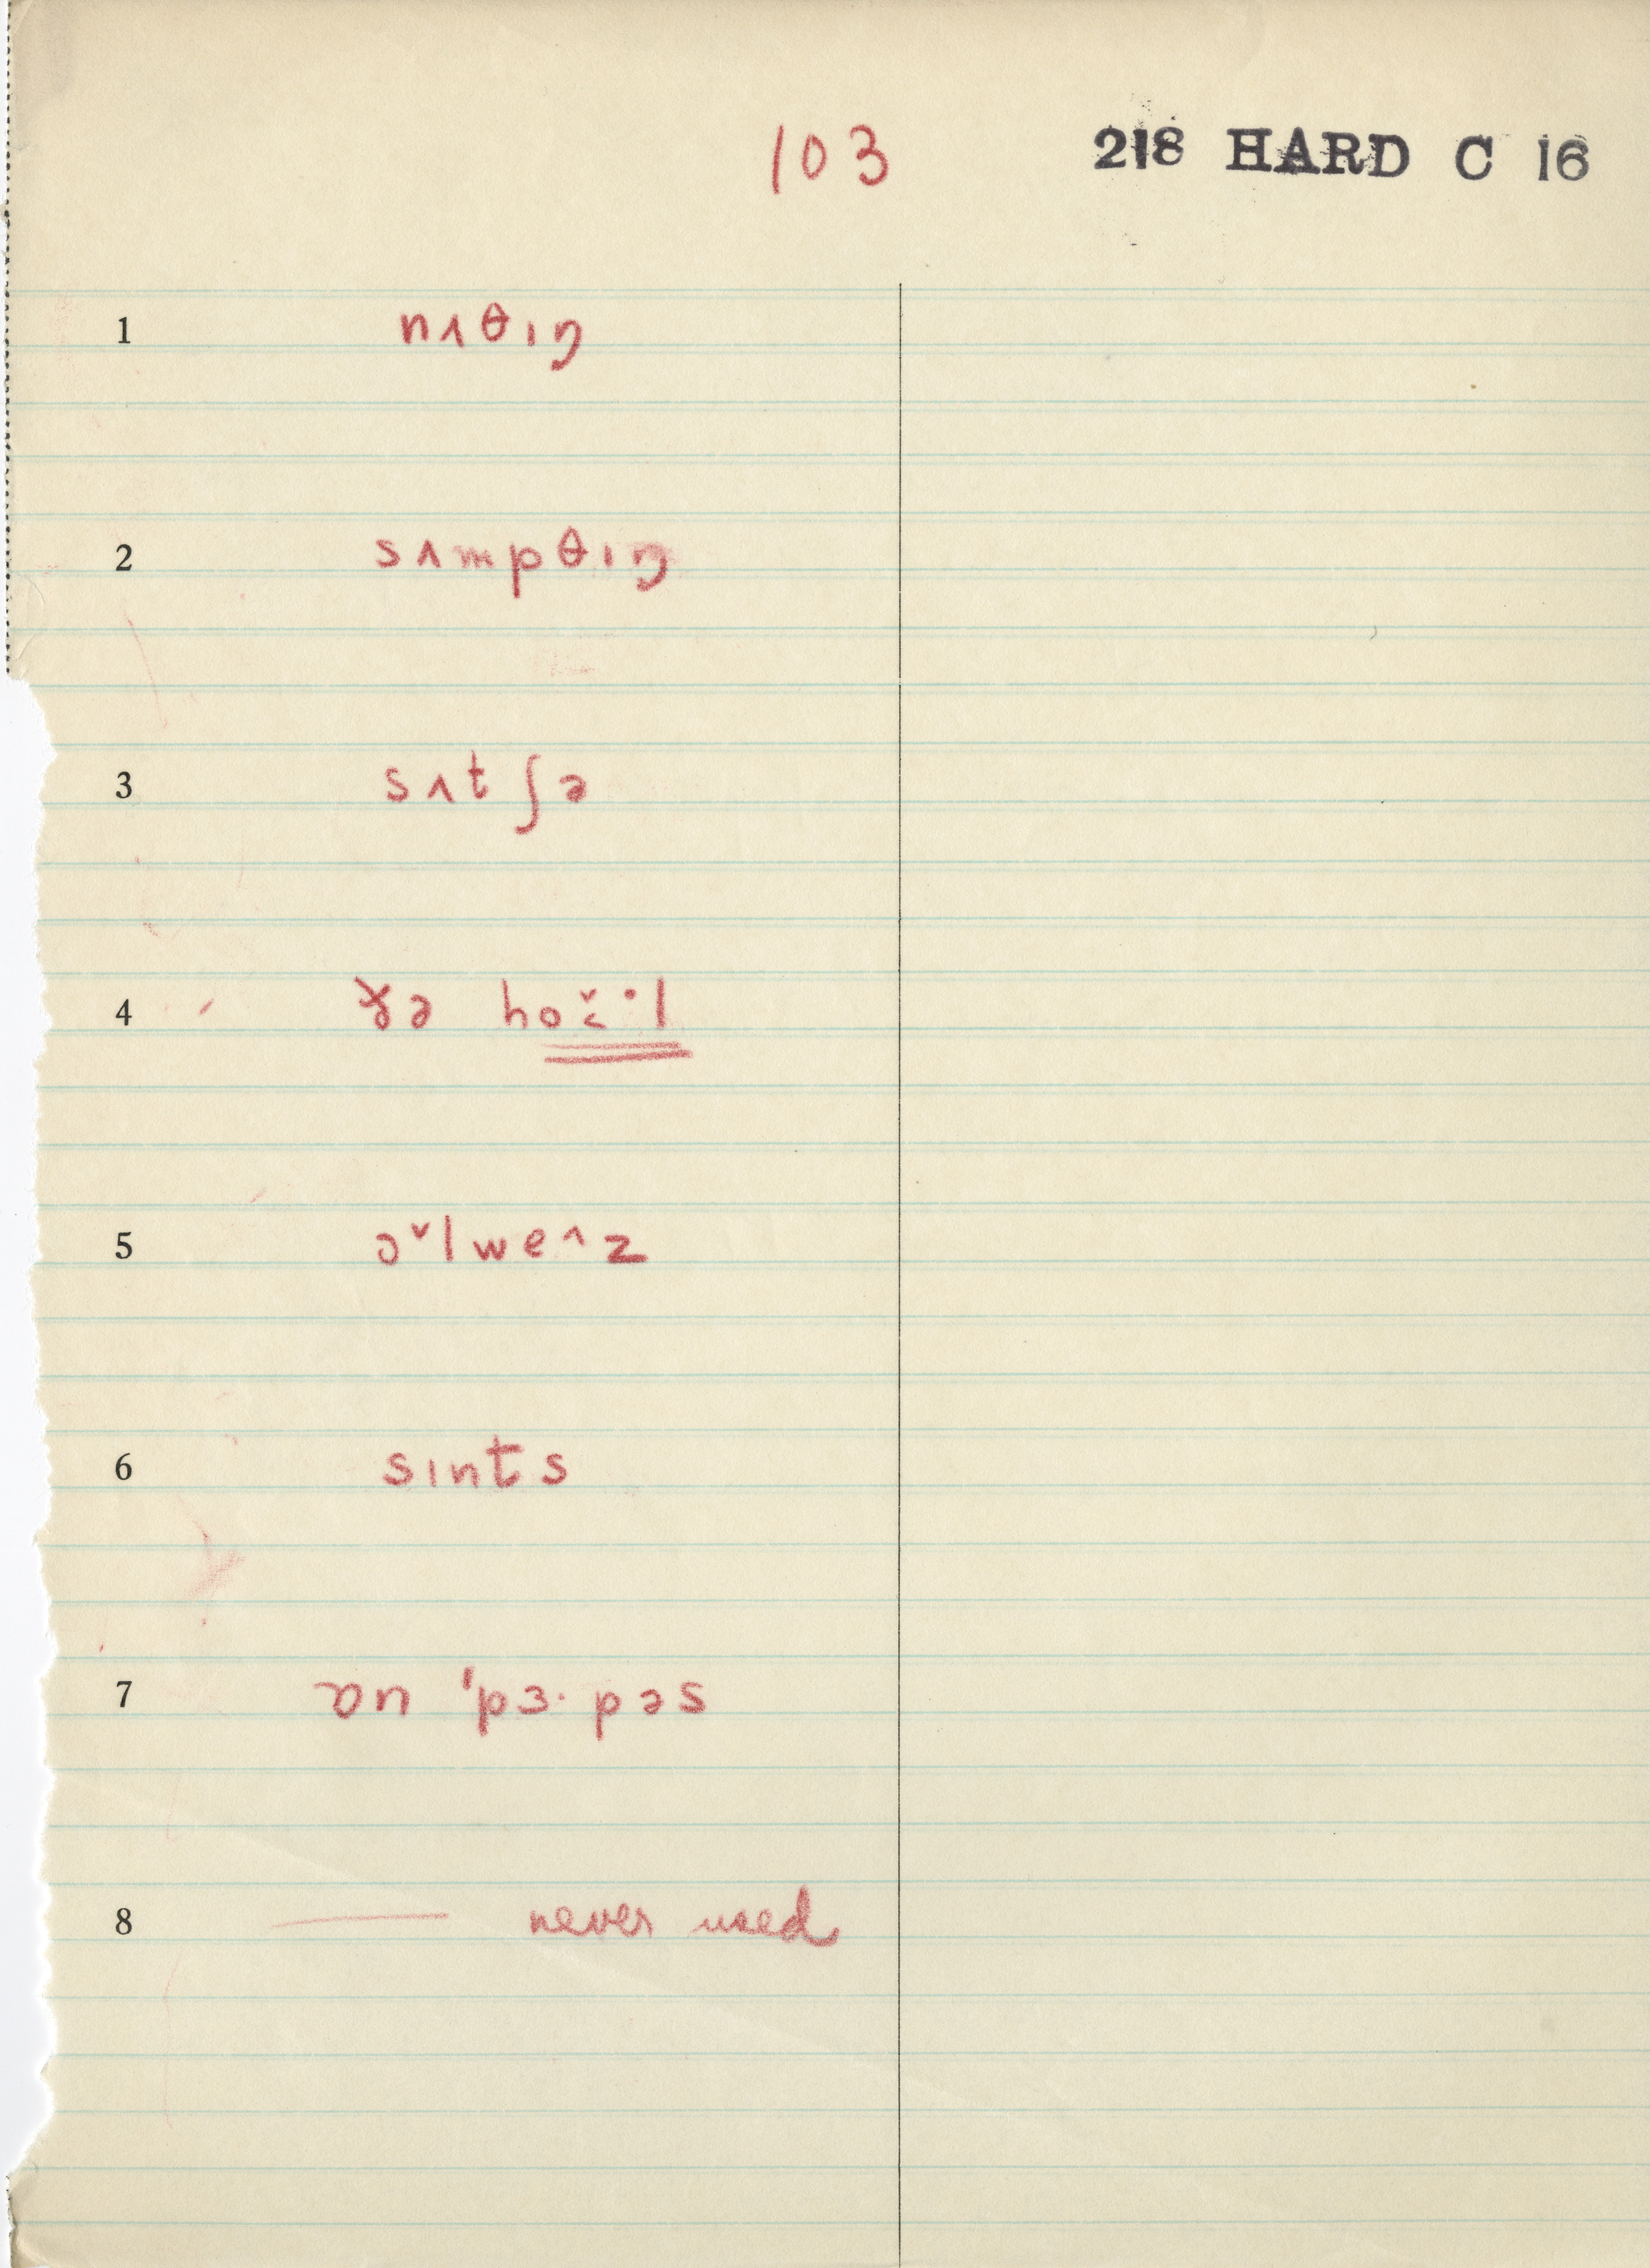 103 218 HARD C 16
1 nʌθɪŋ
2 sʌmpθɪŋ
3 sʌtʃə
4 ðə hǒ̬·l
5 ɔˇlweˆz
6 sɪnts
7 ɒn 'pɜ·pəs
8 — never used